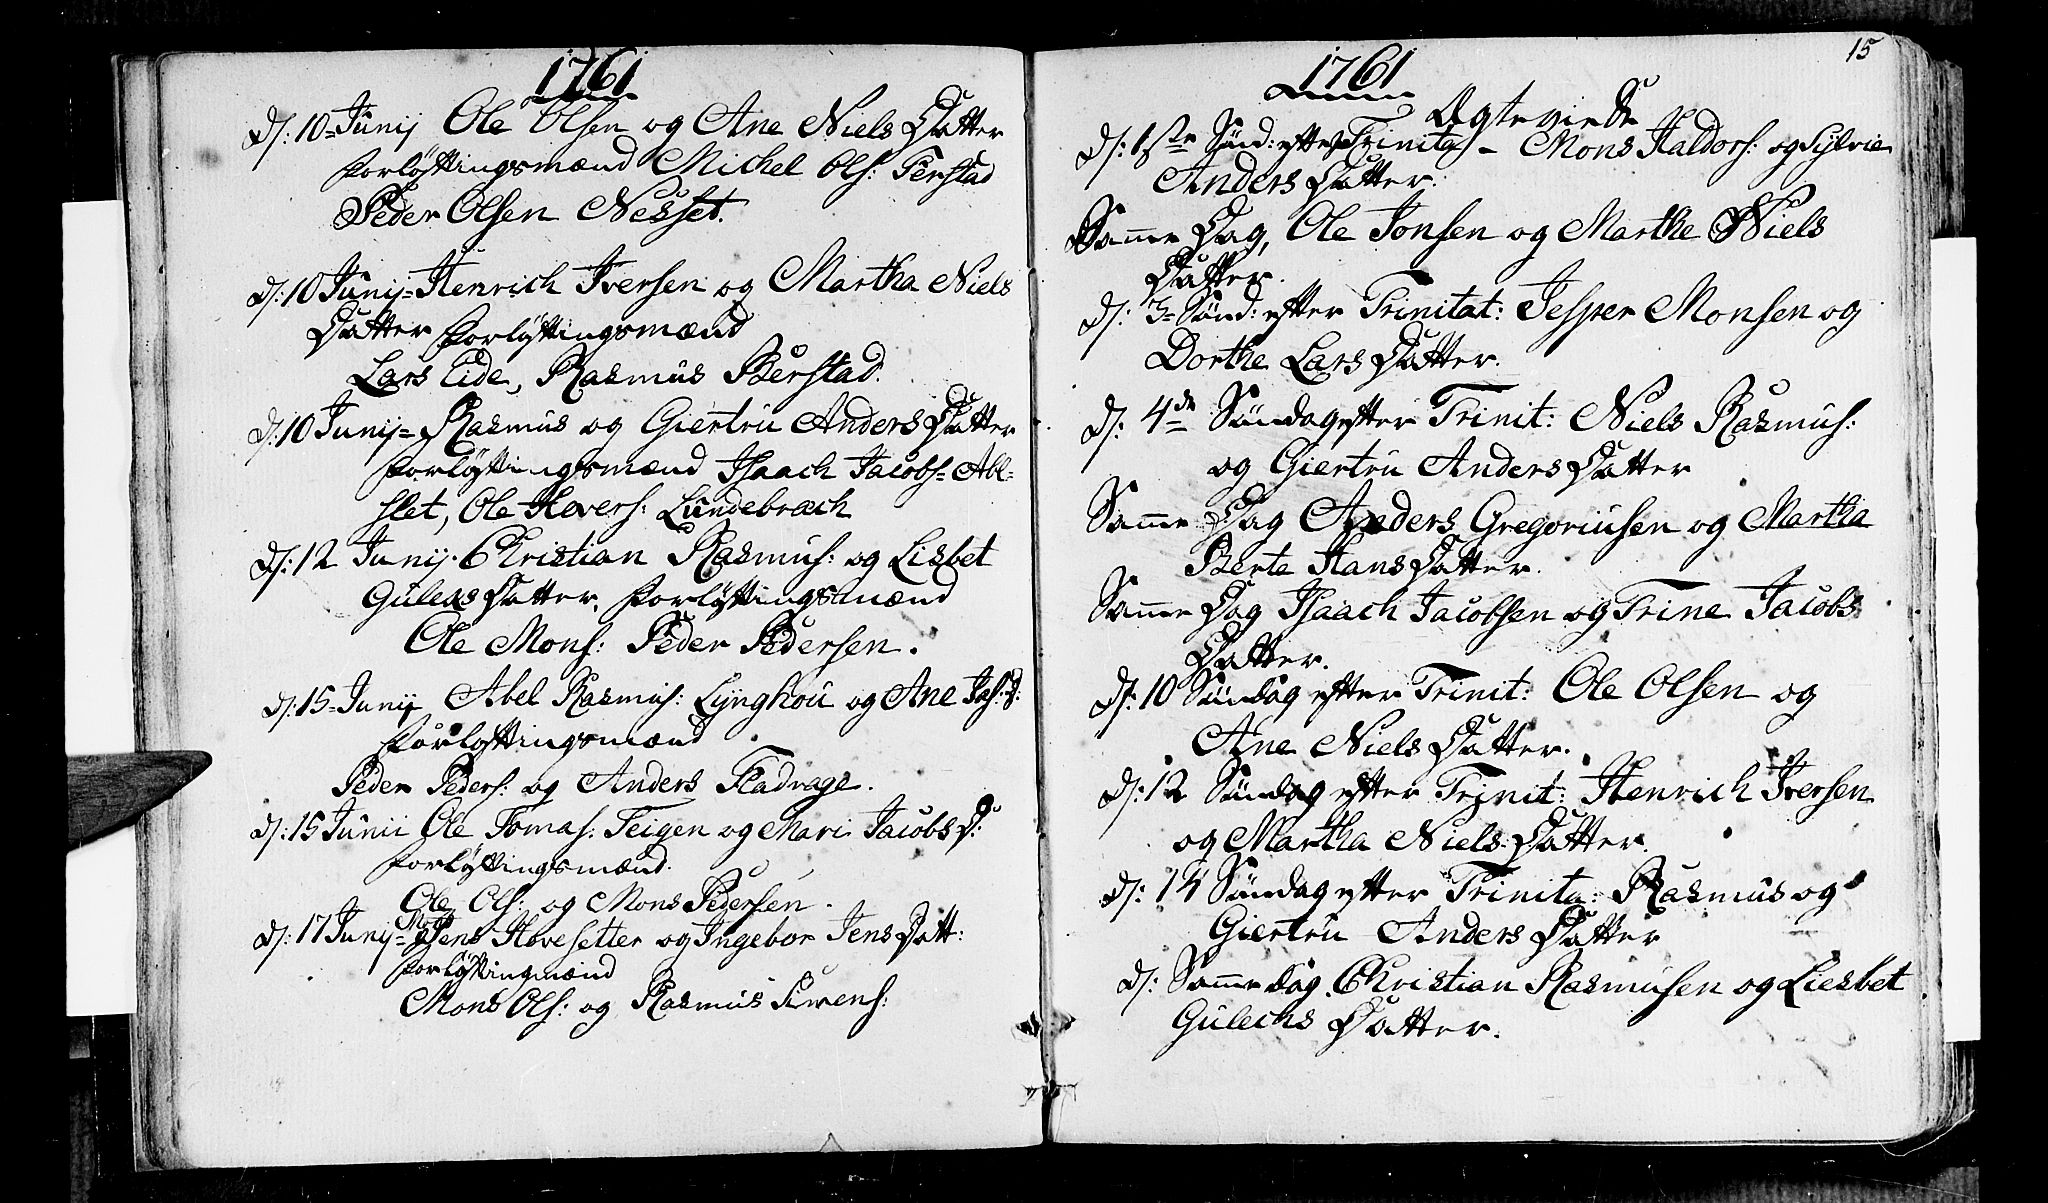 1761
D: 10 Junij Ole Olsen og Ane Niels Datter
Forløftingsmænd Michel Ols: Ferstad
Peder Olsen Nesset.
D: 10 Junij= Henrich Iversen og Martha Niels
Datter Forløftingsmænd
Lars Eide, Rasmus Berstad.
D: 10 Junij= Rasmus og Giertru Anders Datter
Forløftingsmænd Isaach Jacobs= Abl=
set, Ole Hovers: Lundebræch
D: 12 Junij. Christian Rasmus: og Lisbet
Gulexs Datter, Forløftingsmænd
Ole Mons: Peder Pedersen.
D: 15= Junij Abel Rasmus: Lynghou og Ane Jas: D:
Forløftingsmænd
Peder Peders: og Anders Fladvage.
D: 15 Junii Ole Tomas: Teigen og Mari Jacobs D:
Forløftingsmænd.
Ole Ols: og Mons Pedersen.
D: 17 Junij= Jens Hovesetter og Ingebor Jens Datt:
Forløftingmænd
Mons Ols: og Rasmus Siwens:
15
1761
Ægteviede
D: 1ste Sønd: efter Trinita - Mons Haldors: og Sylvie
Anders Datter.
Samme Dag, Ole Jonsen og Marthe Niels
Datter.
D: 3= Sønd: efter Trinitat: Jesper Monsen og
Dorthe Lars Datter.
D: 4de Søndag efter Trinit: Niels Rasmus:
og Giertru Anders Datter
Samme Dag Anders Gregoriusen og Martha
Berte Hans Datter.
Samme Dag Isaach Jacobsen og Trine Jacobs
Datter.
D: 10 Søndag efter Trinit: Ole Olsen og
Ane Niels Datter.
D: 12 Søndag efter Trinit: Henrich Iversen
og Martha Niels Datter.
D: 14 Søndag efter Trinita: Rasmus og
Giertru Anders Datter
D: Samme dag Christian Rasmusen og Liesbet
Gulechs Datter.